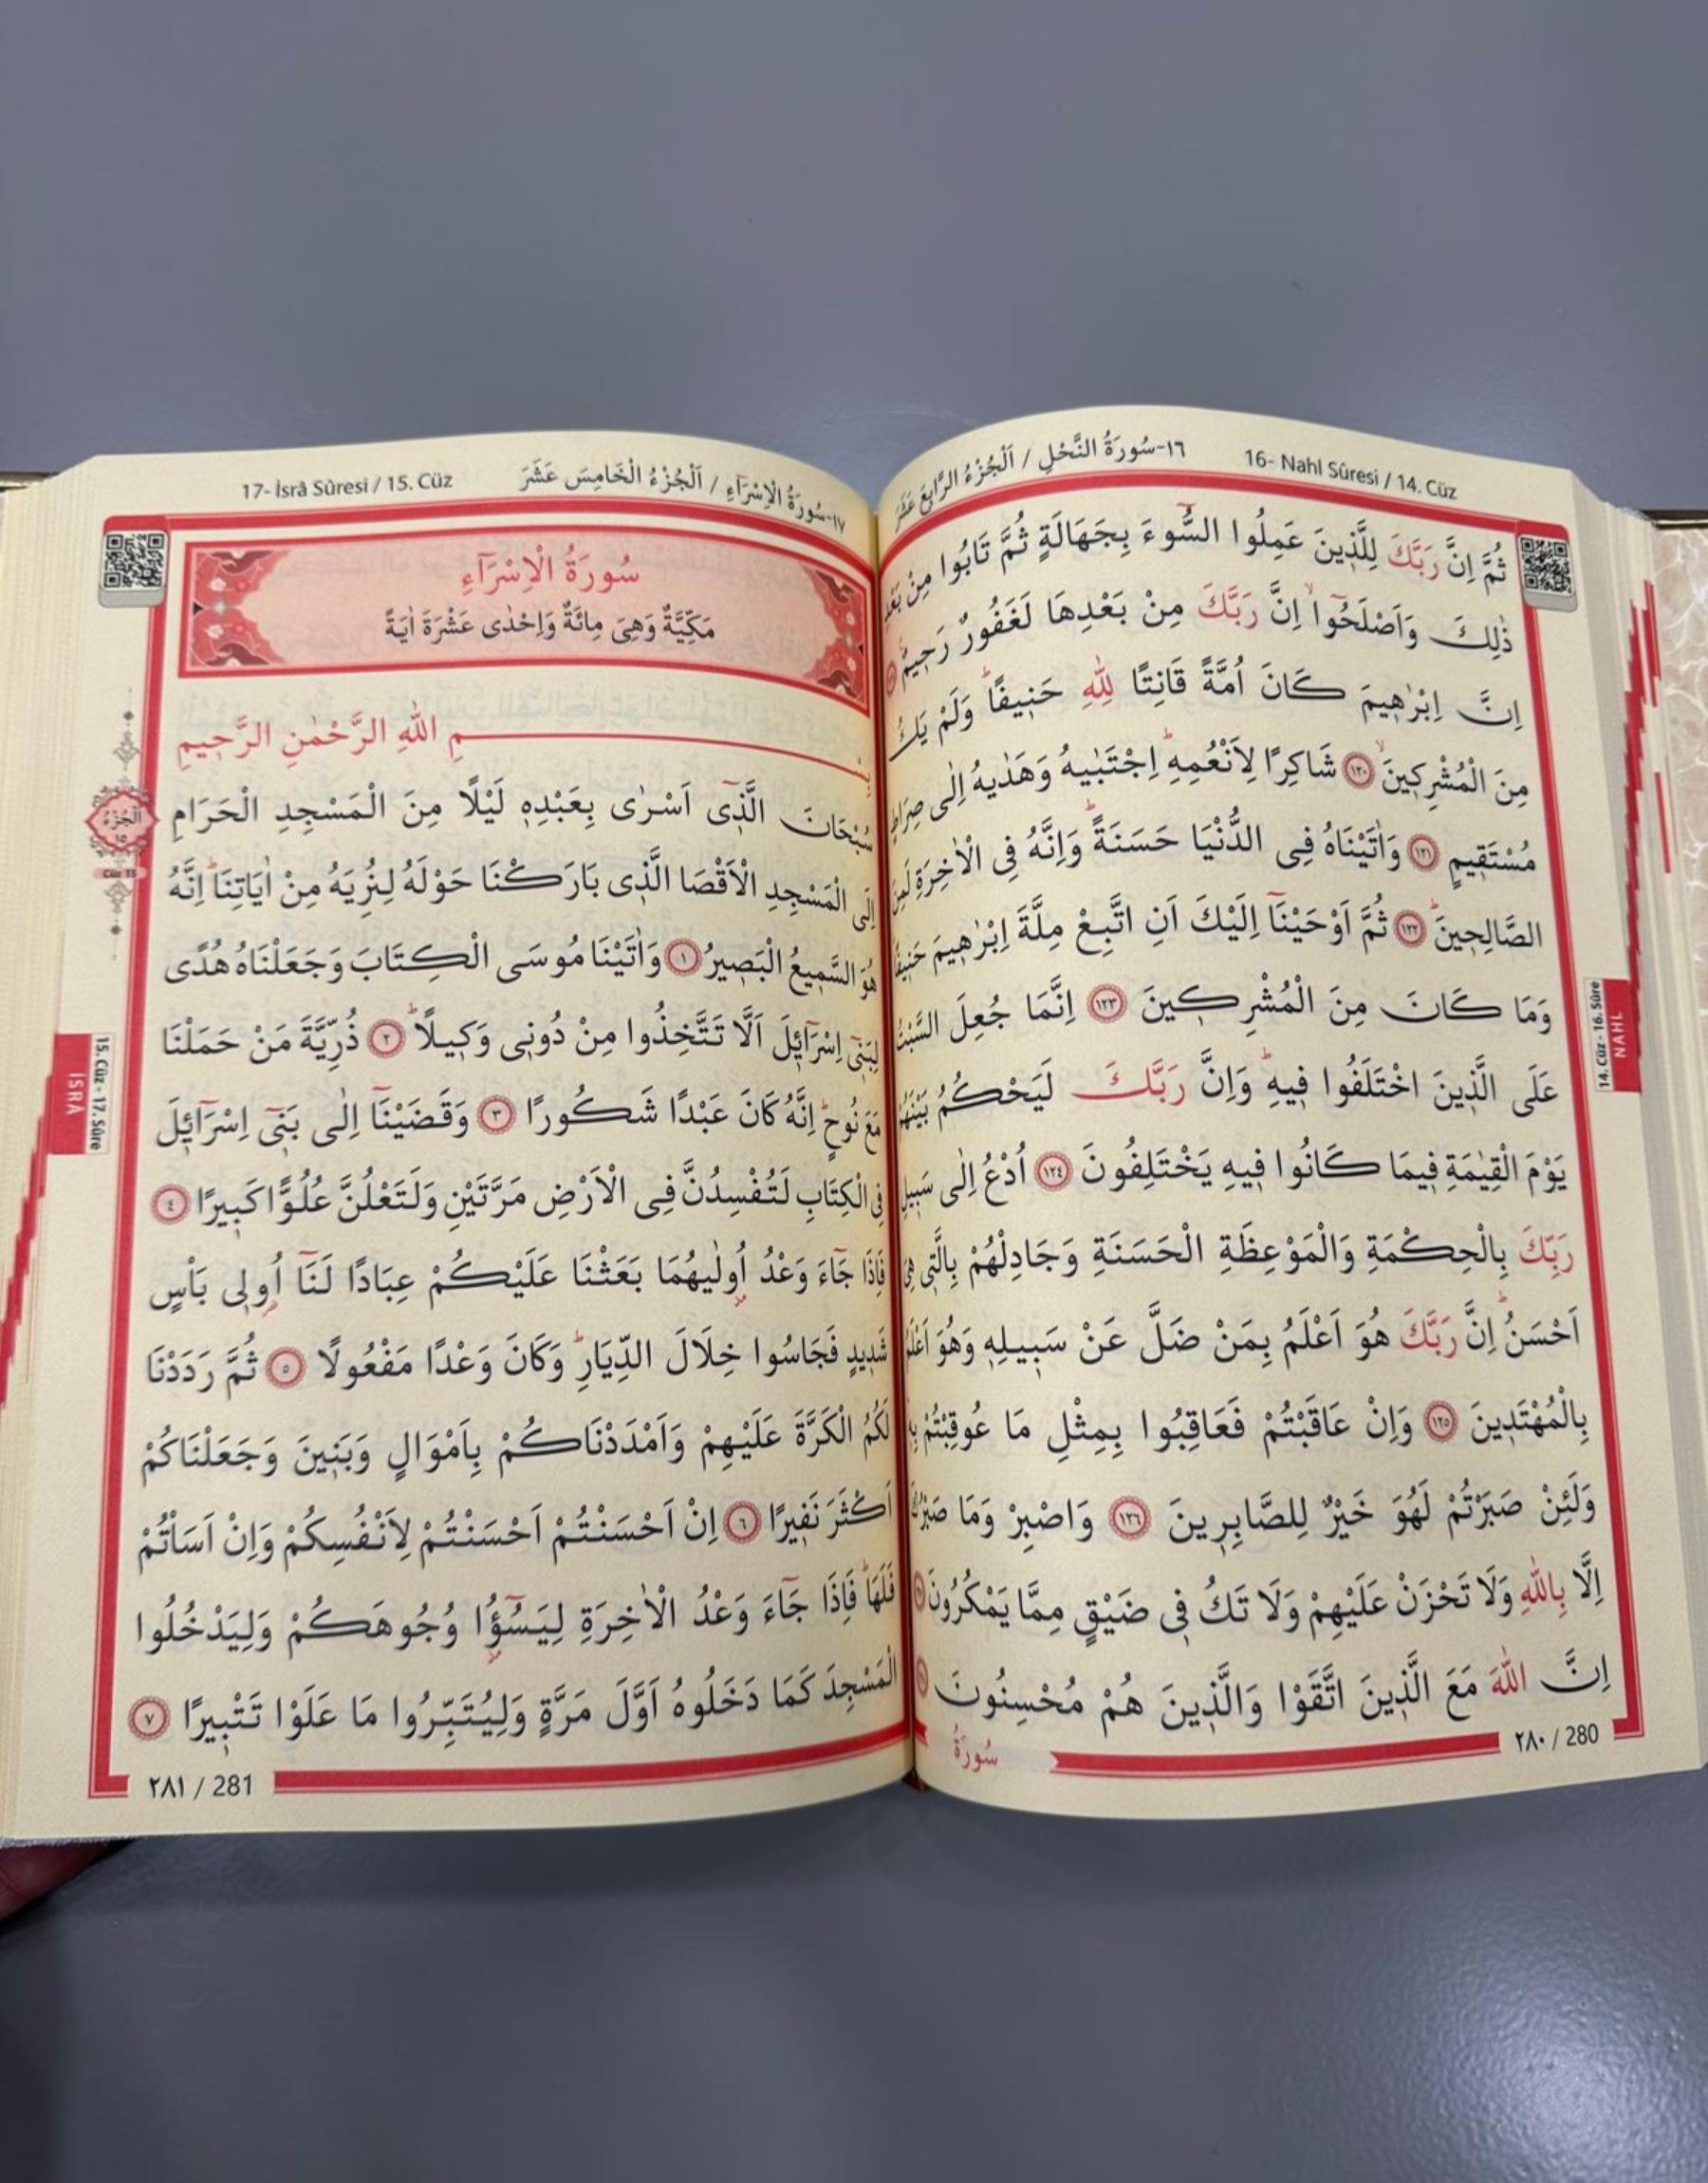 ١٦-سُورَةُ النَّحْلِ / اَلْجُزْءُ الرَّابِعَ عَشَرَ
16- Nahl Sûresi / 14. Cüz
ثُمَّ اِنَّ رَبَّكَ لِلَّذ۪ينَ عَمِلُوا السُّٓوءَ بِجَهَالَةٍ ثُمَّ تَابُوا مِنْ بَعْدِ
ذٰلِكَ وَاَصْلَحُٓواۙ اِنَّ رَبَّكَ مِنْ بَعْدِهَا لَغَفُورٌ رَح۪يمٌ۟
اِنَّ اِبْرٰه۪يمَ كَانَ اُمَّةً قَانِتًا لِلّٰهِ حَن۪يفًاۜ وَلَمْ يَكُ
مِنَ الْمُشْرِك۪ينَۙ ﴿١٢٠﴾ شَاكِرًا لِاَنْعُمِه۪ۜ اِجْتَبٰيهُ وَهَدٰيهُ اِلٰى صِرَاطٍ
مُسْتَق۪يمٍ ﴿١٢١﴾ وَاٰتَيْنَاهُ فِى الدُّنْيَا حَسَنَةًۜ وَاِنَّهُ فِى الْاٰخِرَةِ لَمِنَ
الصَّالِح۪ينَۜ ﴿١٢٢﴾ ثُمَّ اَوْحَيْنَٓا اِلَيْكَ اَنِ اتَّبِعْ مِلَّةَ اِبْرٰه۪يمَ حَن۪يفًا
وَمَا كَانَ مِنَ الْمُشْرِك۪ينَ ﴿١٢٣﴾ اِنَّمَا جُعِلَ السَّبْتُ
عَلَى الَّذ۪ينَ اخْتَلَفُوا ف۪يهِۜ وَاِنَّ رَبَّكَ لَيَحْكُمُ بَيْنَهُمْ
يَوْمَ الْقِيٰمَةِ ف۪يمَا كَانُوا ف۪يهِ يَخْتَلِفُونَ ﴿١٢٤﴾ اُدْعُ اِلٰى سَب۪يلِ
رَبِّكَ بِالْحِكْمَةِ وَالْمَوْعِظَةِ الْحَسَنَةِ وَجَادِلْهُمْ بِالَّت۪ى هِىَ
اَحْسَنُۜ اِنَّ رَبَّكَ هُوَ اَعْلَمُ بِمَنْ ضَلَّ عَنْ سَب۪يلِه۪ وَهُوَ اَعْلَمُ
بِالْمُهْتَد۪ينَ ﴿١٢٥﴾ وَاِنْ عَاقَبْتُمْ فَعَاقِبُوا بِمِثْلِ مَا عُوقِبْتُمْ بِه۪
وَلَئِنْ صَبَرْتُمْ لَهُوَ خَيْرٌ لِلصَّابِر۪ينَ ﴿١٢٦﴾ وَاصْبِرْ وَمَا صَبْرُكَ
اِلَّا بِاللّٰهِ وَلَا تَحْزَنْ عَلَيْهِمْ وَلَا تَكُ ف۪ى ضَيْقٍ مِمَّا يَمْكُرُونَ
اِنَّ اللّٰهَ مَعَ الَّذ۪ينَ اتَّقَوْا وَالَّذ۪ينَ هُمْ مُحْسِنُونَ
سُورَةُ
٢٨٠ / 280
14. Cüz - 16. Sûre
NAHL
١٧-سُورَةُ الْاِسْرَٓاءِ / اَلْجُزْءُ الْخَامِسَ عَشَرَ
17- İsrâ Sûresi / 15. Cüz
سُورَةُ الْاِسْرَٓاءِ
مَكِّيَّةٌ وَهِىَ مِائَةٌ وَاِحْدٰى عَشْرَةَ اٰيَةً
بِسْمِ اللّٰهِ الرَّحْمٰنِ الرَّح۪يمِ
سُبْحَانَ الَّذ۪ٓى اَسْرٰى بِعَبْدِه۪ لَيْلًا مِنَ الْمَسْجِدِ الْحَرَامِ
اِلَى الْمَسْجِدِ الْاَقْصَا الَّذ۪ى بَارَكْنَا حَوْلَهُ لِنُرِيَهُ مِنْ اٰيَاتِنَاۜ اِنَّهُ
هُوَ السَّم۪يعُ الْبَص۪يرُ ﴿١﴾ وَاٰتَيْنَا مُوسَى الْكِتَابَ وَجَعَلْنَاهُ هُدًى
لِبَن۪ٓى اِسْرَٓائ۪لَ اَلَّا تَتَّخِذُوا مِنْ دُون۪ى وَك۪يلًاۜ ﴿٢﴾ ذُرِّيَّةَ مَنْ حَمَلْنَا
مَعَ نُوحٍۜ اِنَّهُ كَانَ عَبْدًا شَكُورًا ﴿٣﴾ وَقَضَيْنَٓا اِلٰى بَن۪ٓى اِسْرَٓائ۪لَ
فِى الْكِتَابِ لَتُفْسِدُنَّ فِى الْاَرْضِ مَرَّتَيْنِ وَلَتَعْلُنَّ عُلُوًّا كَب۪يرًا ﴿٤﴾
فَاِذَا جَٓاءَ وَعْدُ اُو۫لٰيهُمَا بَعَثْنَا عَلَيْكُمْ عِبَادًا لَنَٓا اُو۬ل۪ى بَاْسٍ
شَد۪يدٍ فَجَاسُوا خِلَالَ الدِّيَارِۜ وَكَانَ وَعْدًا مَفْعُولًا ﴿٥﴾ ثُمَّ رَدَدْنَا
لَكُمُ الْكَرَّةَ عَلَيْهِمْ وَاَمْدَدْنَاكُمْ بِاَمْوَالٍ وَبَن۪ينَ وَجَعَلْنَاكُمْ
اَكْثَرَ نَف۪يرًا ﴿٦﴾ اِنْ اَحْسَنْتُمْ اَحْسَنْتُمْ لِاَنْفُسِكُمْ وَاِنْ اَسَاْتُمْ
فَلَهَاۜ فَاِذَا جَٓاءَ وَعْدُ الْاٰخِرَةِ لِيَسُٓؤُ۫ا وُجُوهَكُمْ وَلِيَدْخُلُوا
الْمَسْجِدَ كَمَا دَخَلُوهُ اَوَّلَ مَرَّةٍ وَلِيُتَبِّرُوا مَا عَلَوْا تَتْب۪يرًا ﴿٧﴾
٢٨١ / 281
اَلْجُزْءُ
١٥
Cüz 15
15. Cüz - 17. Sûre
İSRÂ